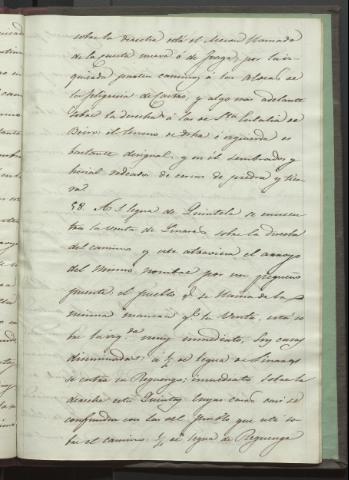 sobre la derecha está el Meson llamado
de la puente nueva ó de Fraga; por la iz-
quierda parten caminos á las Aldeas de
la feligresia de Castro, y algo mas adelante
sobre la derecha á las de Sta. Eulalia de
Beiro: el terreno de dcha. é izquierda es
bastante desigual, y en él sembrados y
herial rodeado de cercas de piedra y tier-
ra
58. A ½ legua de Quintela se encuen-
tra la venta de Linares sobre la derecha
del camino y este atraviesa el arroyo
del mismo nombre por un pequeño
puente. el pueblo q. se llama de la
misma manera q. la Venta, está so-
bre la izq.da muy inmediato, hay casas
diseminadas; á ½ de legua de Linares
se entra en Reguengo; inmediato sobre la
derecha está Quintas cuyas casas casi se
confunden con las del pueblo que está so-
bre el camino. ½ de legua de Reguengo